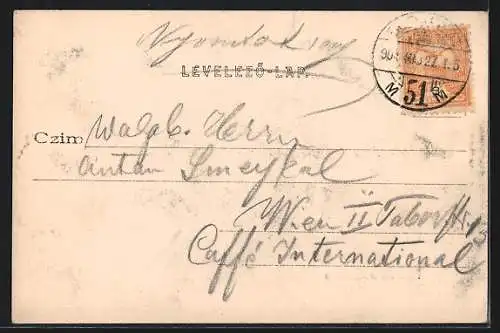 Nyomtatvány
LEVELEZŐ-LAP.
51
M M
Czim Wolgb. Herrn
Antan Smeykal
Wien II Taborstr.
Caffé International